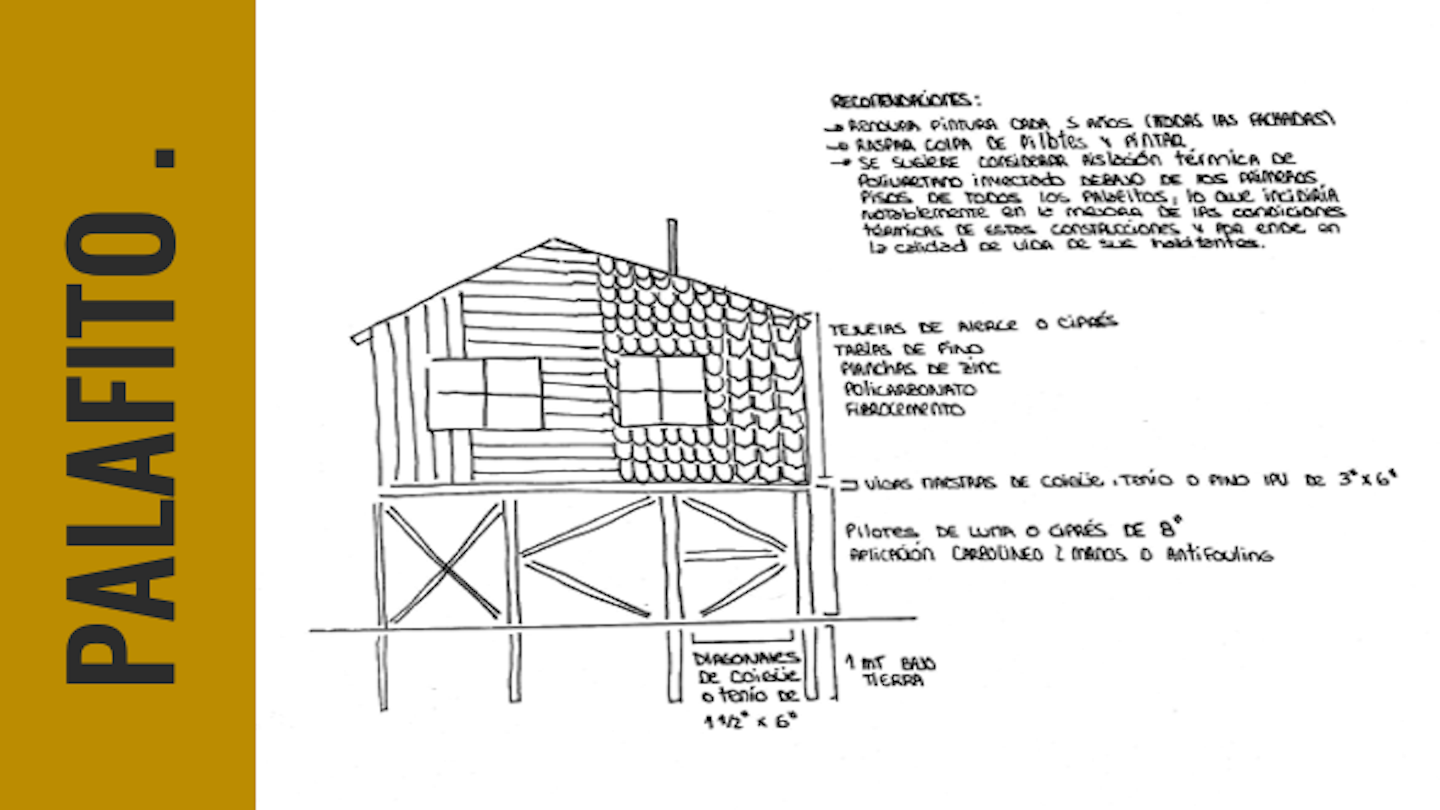 PALAFITO .
RECOMENDACIONES:
→ RENOVAR PINTURA CADA 5 AÑOS (TODAS LAS FACHADAS)
→ RASPAR COLPA DE PILOTES Y PINTAR
→ SE SUGIERE CONSIDERAR AISLACIÓN TÉRMICA DE
POLIURETANO INYECTADO DEBAJO DE LOS PRIMEROS
PISOS DE TODOS LOS PALAFITOS, LO QUE INCIDIRÍA
NOTABLEMENTE EN LA MEJORA DE LAS CONDICIONES
TÉRMICAS DE ESTAS CONSTRUCCIONES Y POR ENDE EN
LA CALIDAD DE VIDA DE SUS HABITANTES.
TEJUELAS DE ALERCE O CIPRÉS
TABLAS DE PINO
PLANCHAS DE ZINC
POLICARBONATO
FIBROCEMENTO
VIGAS MAESTRAS DE COIGÜE, TENÍO O PINO IPV DE 3" X 6"
PILARES DE LUMA O CIPRÉS DE 8"
APLICACIÓN CARBOLINEO 2 MANOS O ANTIFOULING
DIAGONALES
DE COIGÜE
O TENÍO DE
1 1/2" X 6"
1 MT BAJO
TIERRA